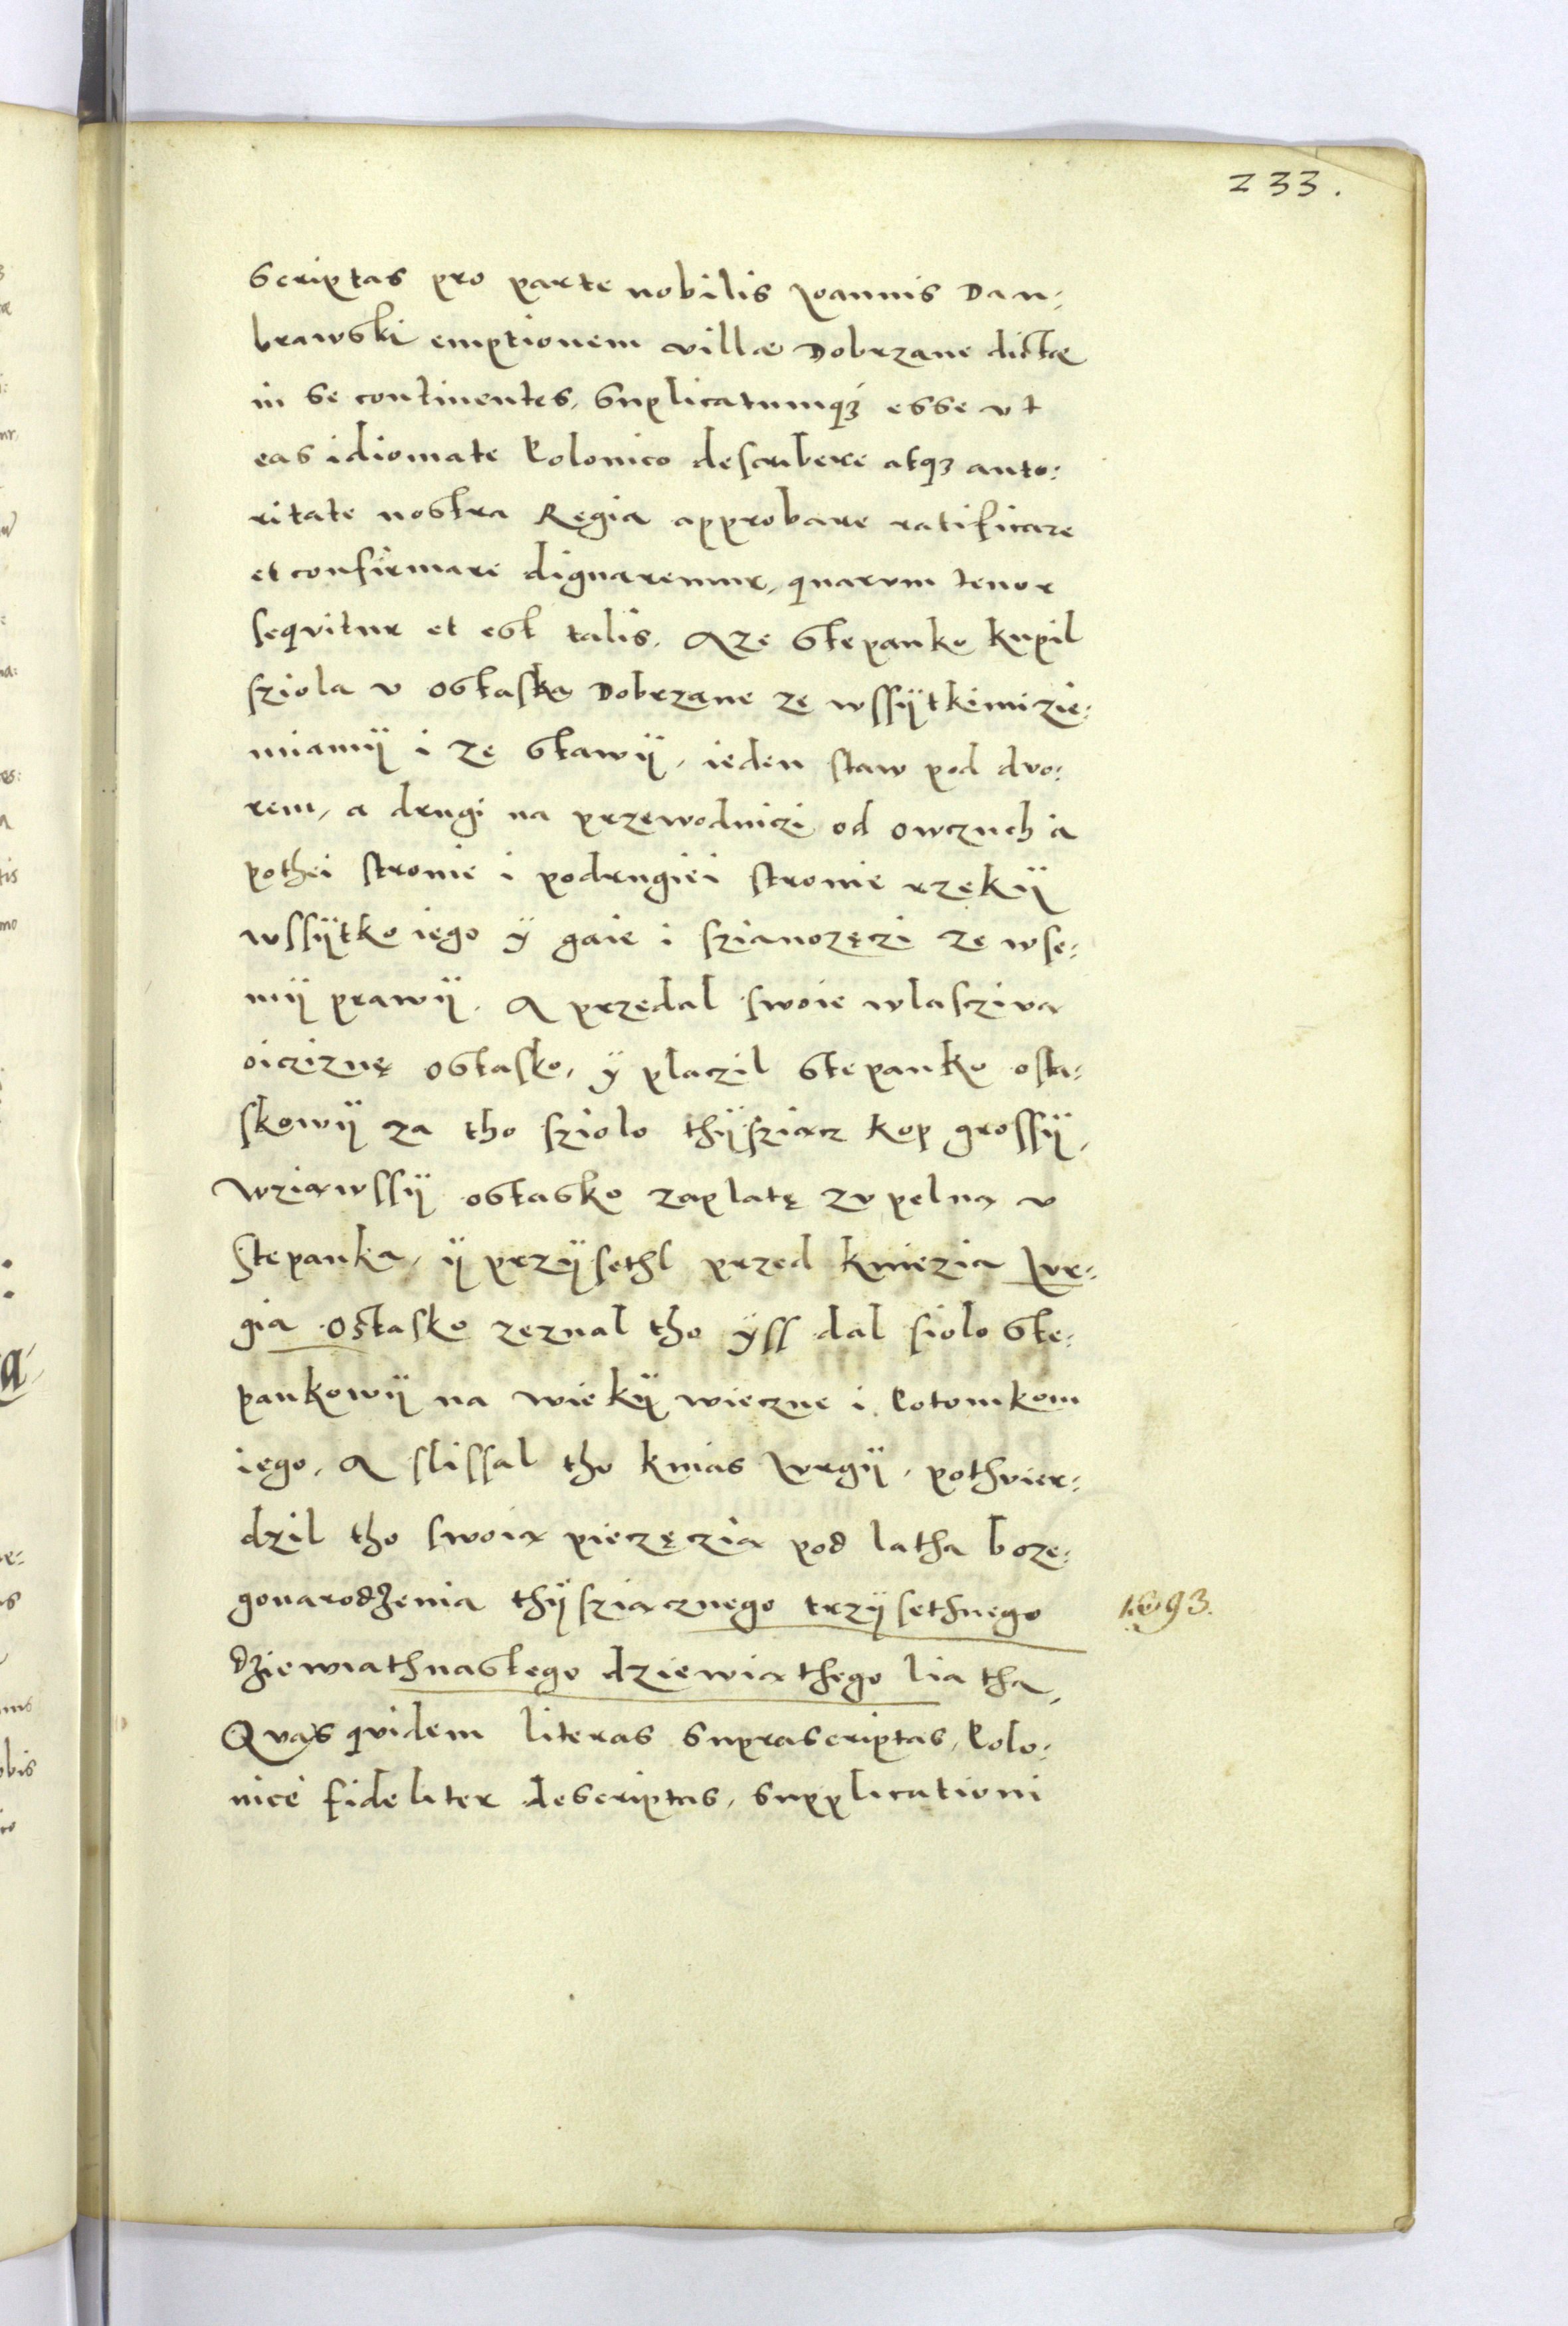 233.
Scriptas pro parte nobilis Joannis Dan:
brawski emptionem villæ Dobrzane dictæ
in se continentes, Suplicatumqȝ esse vt
eas idiomate Polonico describere atqȝ auto:
ritate nostra Regia approbare ratificare
et confirmare dignaremur, quarum tenor
sequitur et est talis. Aze Stepanko kupil
sziola v Ostaska Dobrzane ze wssÿtkimi zie:
miamÿ i ze stawÿ, ieden staw pod dvo:
rem, a drugi na przewodniczi od owczuch a
pothei stronie i podrugiei stronie rzekÿ
wssÿtko iego ÿ gaie i szianozęczi ze wse:
mÿ prawÿ. A przedal swoie wlasziva
oicziznę Ostasko, ÿ placzil Stepanko osta:
skowÿ za tho sziolo thÿsziącz kop grossÿ,
Wziąwssÿ ostasko zaplatę zvpelną v
Stepanka, ÿ przÿsethl przed kniezia Jvr:
gia Ostasko zeznal tho ÿss dal siolo Ste:
pankowÿ na wiekÿ wieczne i Potomkom
iego, A slissal tho knias Jvrgÿ, pothvier:
dzil tho swoią pieczęczią pod latha boze:
gonarodzenia thÿsziącznego trzÿsethnego
dziewiathnastego dziewiąthego lia tha,
Qvas quidem literas suprascriptas, Polo:
nice fideliter descriptas, supplicationi